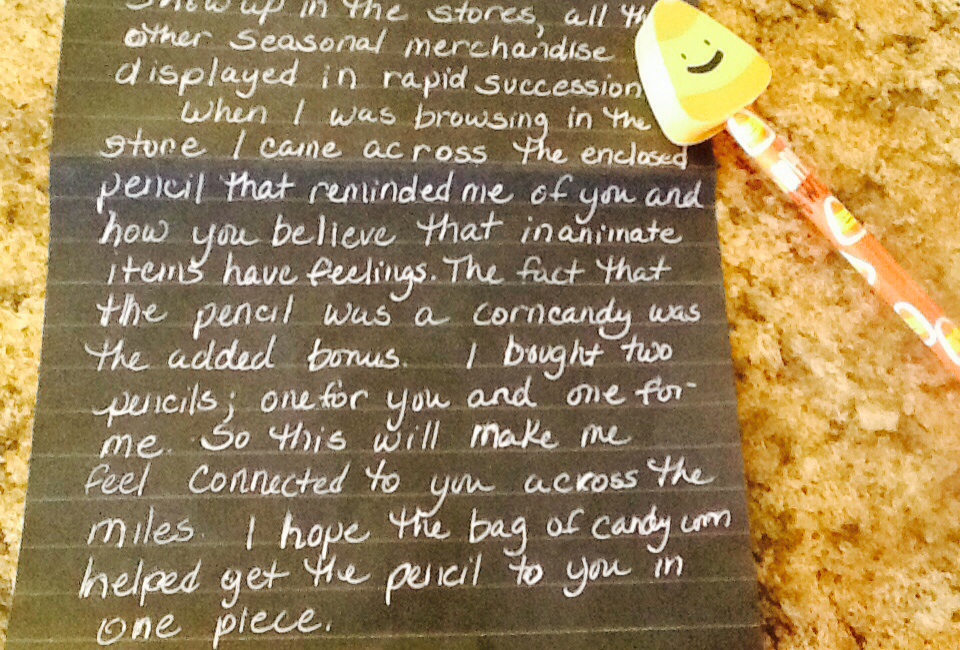 show up in the stores, all the
other seasonal merchandise
displayed in rapid succession
When I was browsing in the
store I came across the enclosed
pencil that reminded me of you and
how you believe that inanimate
items have feelings. The fact that
the pencil was a corncandy was
the added bonus. I bought two
pencils; one for you and one for
me. So this will make me
feel connected to you across the
miles. I hope the bag of candy corn
helped get the pencil to you in
one piece.